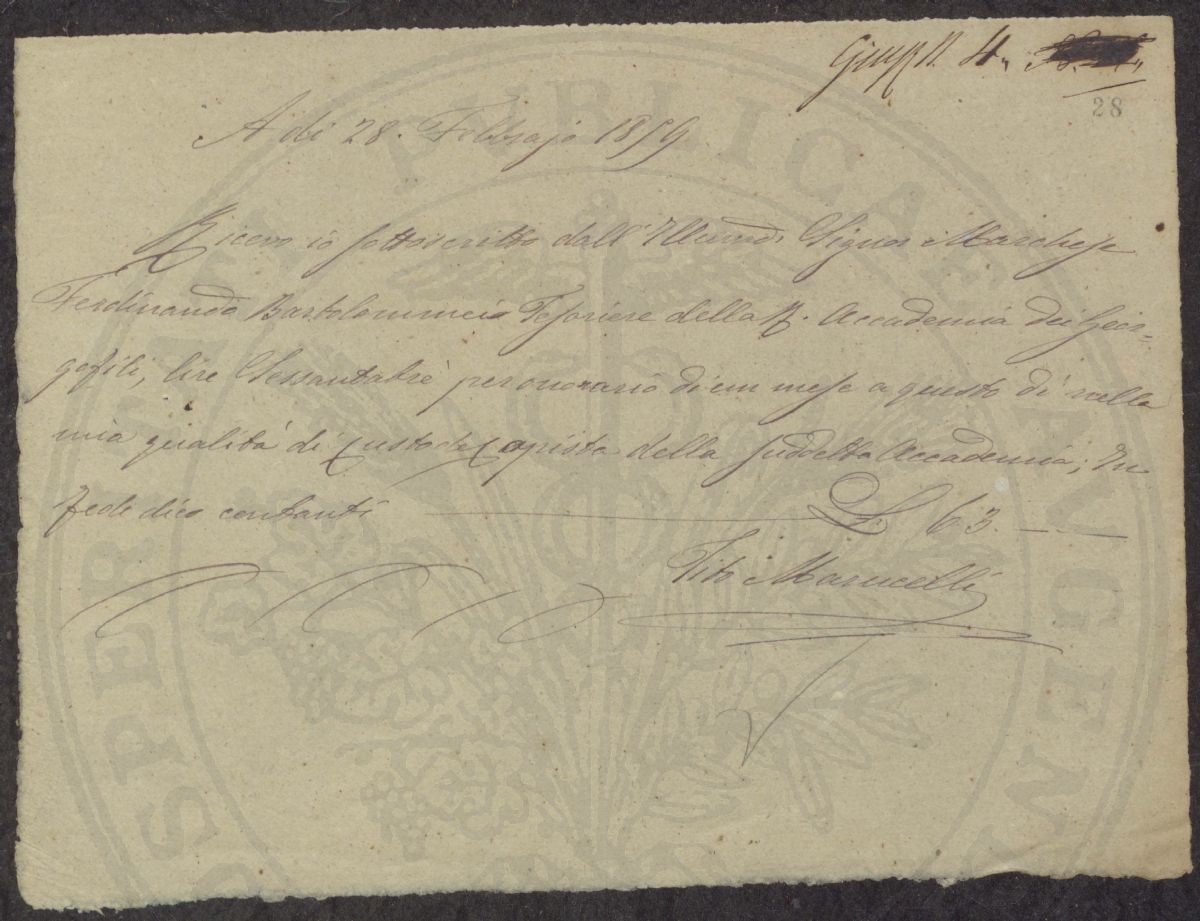 Giust. N. 4.
28
A dì 28. Febbrajo 1859
Ricevo io sottoscritto dall' Illmo Signor Marchese
Ferdinando Bartolommei Tesoriere della R. Accademia dei Geor-
gofili, lire Sessantatrè per onorario di un mese a questo dì nella
mia qualità di Custode Copista della suddetta Accademia; In
fede dico contanti L. 63. —
Tito Marucelli
PROSPERITATI PUBLICAE AUGENDAE